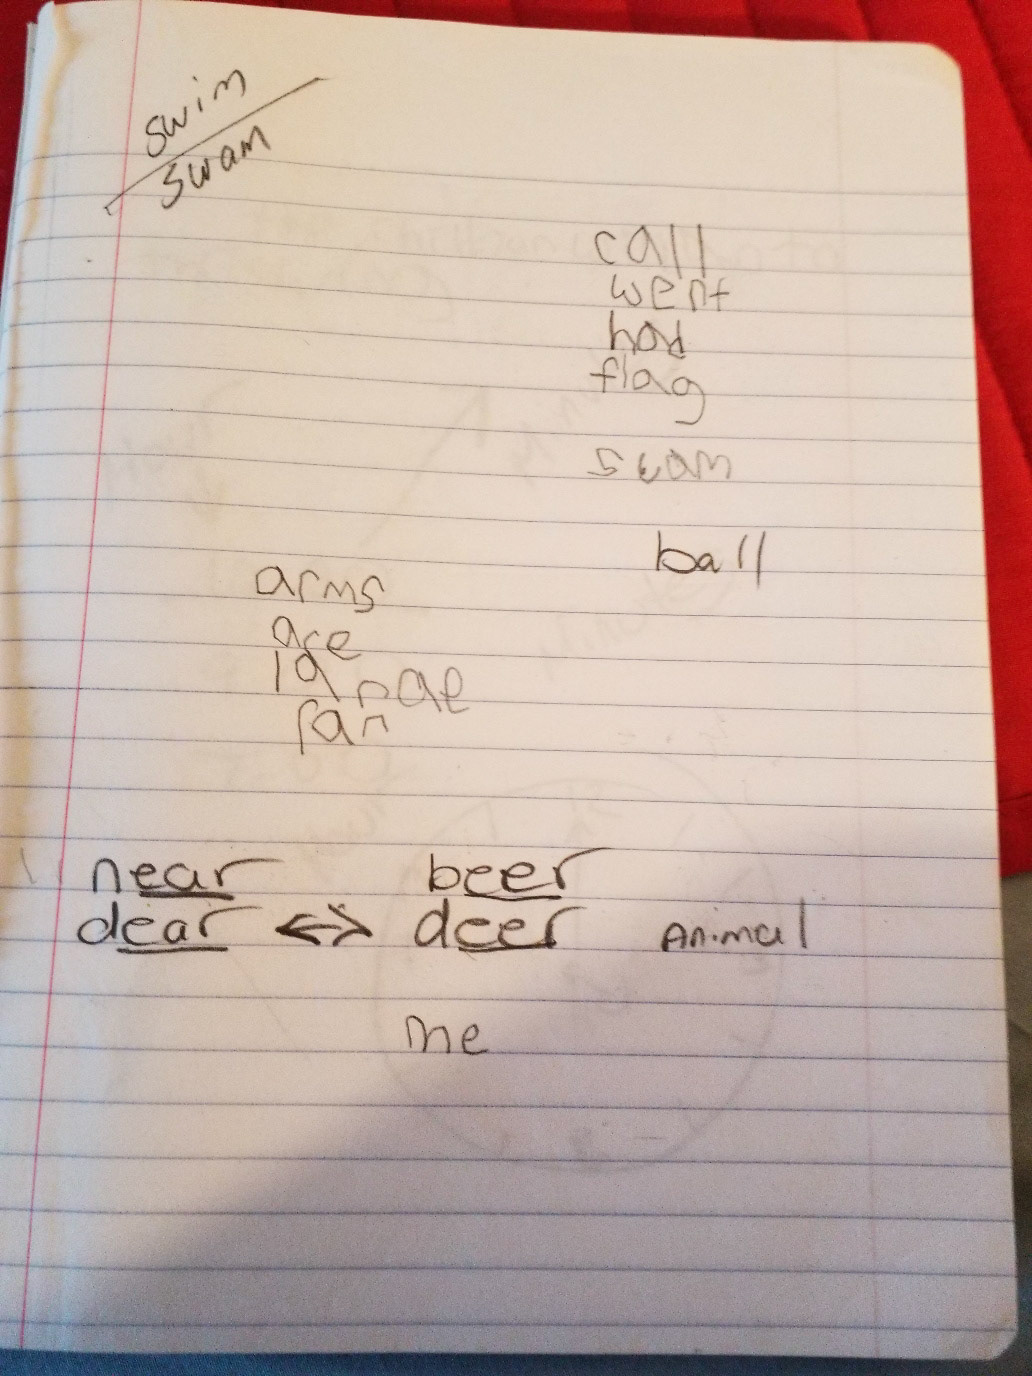 swim
swam
call
went
had
flag
swam
ball
arms
are
ran
near beer
dear <-> deer Animal
me